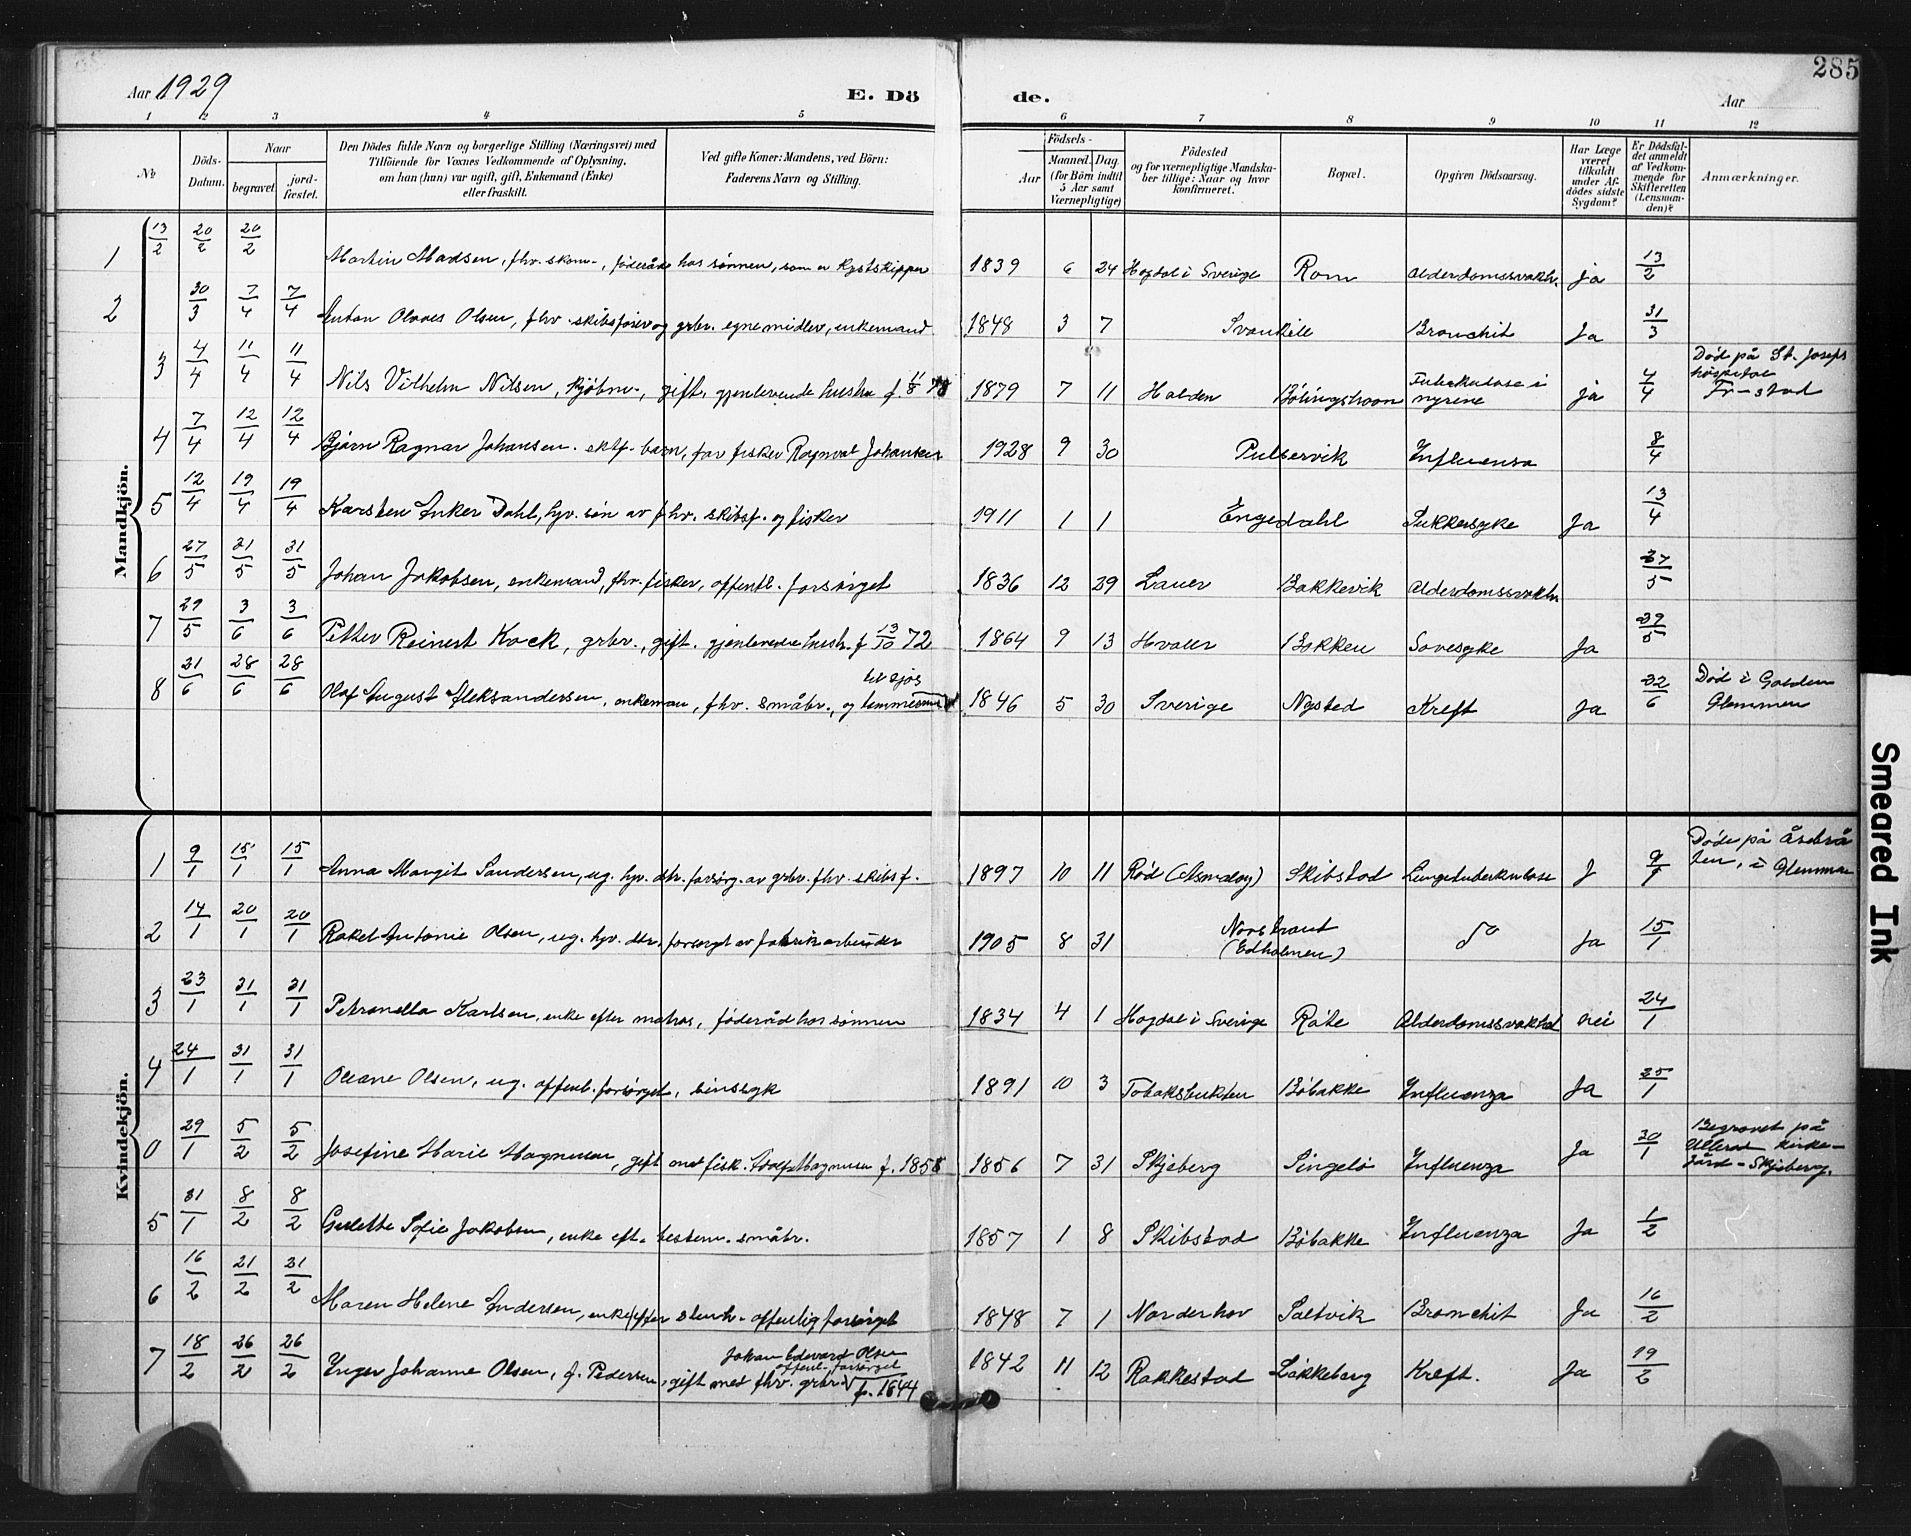 Aar 1929
E. Dö de.
Aar
285
1 2 3 4 5 6 7 8 9 10 11 12
No
Döds-Datum.
Naar begravet. jordfæstet.
Den Dödes fulde Navn og borgerlige Stilling (Næringsvei) med
Tilföiende for Voxnes Vedkommende af Oplysning,
om han (hun) var ugift, gift, Enkemand (Enke)
eller fraskilt.
Ved gifte Koner: Mandens, ved Börn:
Faderens Navn og Stilling.
Födsels-
Aar Maaned. Dag.
(for Börn indtil
5 Aar samt
Værnepligtige)
Födested
og for værnepligtige Mandska-
ber tillige: Naar og hvor
konfirmeret.
Bopæl.
Opgiven Dödsaarsag.
Har Læge
været
tilkaldt
under Af-
dödes sidste
Sygdom?
Er Dödsfal-
det anmeldt
af Vedkom-
mende for
Skifteretten
(Lensman-
den)?
Anmærkninger.
Mandkjön.
1 13/2 20/2 20/2 Martin Madsen, fhv. skom-, föderåd hos sønnen, som er kystskipper 1839 6 24 Hogdal i Sverige Rom Alderdomssvakh. ja 13/2
2 30/3 7/4 7/4 Anton Olaves Olsen, fhv. skibsfører og grbr. egne midler, enkemand. 1848 3 7 Svankile Bronchit Ja 31/3
3 4/4 11/4 11/4 Nils Vilhelm Nilsen, kjøbm-, gift, gjenlevende hustru f. 11/8 78 1879 7 11 Halden Bølingshavn Tuberkulose i nyrene ja 4/4 Død på St. Josephs hospital Fr-stad
4 7/4 12/4 12/4 Bjørn Ragnar Johansen. ektf. barn, far fisker Ragnval Johansen 1928 9 30 Pulservik Influensa 8/4
5 12/4 19/4 19/4 Karsten Anker Dahl, hjv. søn av fhv. skibsf. og fisker 1911 1 1 Engedahl Sukkersyke Ja 13/4
6 27/5 31/5 31/5 Johan Jakobsen, enkemand, fhv. fisker, offentl. forsørget 1836 12 29 Lauer Bakkevik Alderdomssvakh 27/5
7 29/5 3/6 3/6 Petter Reinert Kock, grbr., gift. gjenlevende hustr. f 13/10 72 1864 9 13 Hvaler Bakken Sovesyke Ja 29/5
8 21/6 28/6 28/6 Olaf August Aleksandersen, enkeman, fhv. småbr., og tømmermand til sjøs 1846 5 30 Sverige Nysted Kreft Ja 22/6 Død i Gaiden Glemmen
Kvindekjön.
1 9/1 15/1 15/1 Anna Margit Sandersen, ug. hjv. dtr. forsørg. av grbr. fhv. skibsf. 1897 10 11 Rød (Asmaløy) Skibstad Lungetuberkulose J 9/1 Døde på Åsebrå ten, i Glemmen
2 14/1 20/1 20/1 Rakel Antonie Olsen, ug. hjv. dtr. forsørget av fabrikarbeider 1905 8 31 Norstrant (Edholmen) do Ja 15/1
3 23/1 31/1 31/1 Petronella Karlsen, enke efter matros, föderåd hos sønnen 1834 4 1 Hogdal i Sverige Røte Alderdomssvakhd nei 24/1
4 24/1 31/1 31/1 Oleane Olsen, ug. offentl. forsørget, sinssyk 1891 10 3 Tobaksbukten Bøbakke Influenza Ja 25/1
0 29/1 5/2 5/2 Josefine Marie Magnussen, gift med fisk. Adolf Magnusen f. 1858 1856 7 31 Skjeberg Singelö Influenza Ja 30/1 Begravet på Ullerød kirke- gård - Skjeberg.
5 31/1 8/2 8/2 Gulette Sofie Jakobsen, enke eft. bestem. småbr. 1857 1 8 Skibstad Bøbakke Influenza Ja 1/2
6 16/2 21/2 21/2 Maren Helene Andersen, enke efter stenh. offentlig forsørget 1848 7 1 Norderhov Saltvik Bronchit Ja 16/2
7 18/2 26/2 26/2 Inger Johanne Olsen, f. Pedersen, gift med fhv. grbr. Johan Edevard Olsen offentl. forsørget f. 1844 1842 11 12 Rakkestad Løkkeberg Kreft. Ja 19/2
Smeared Ink